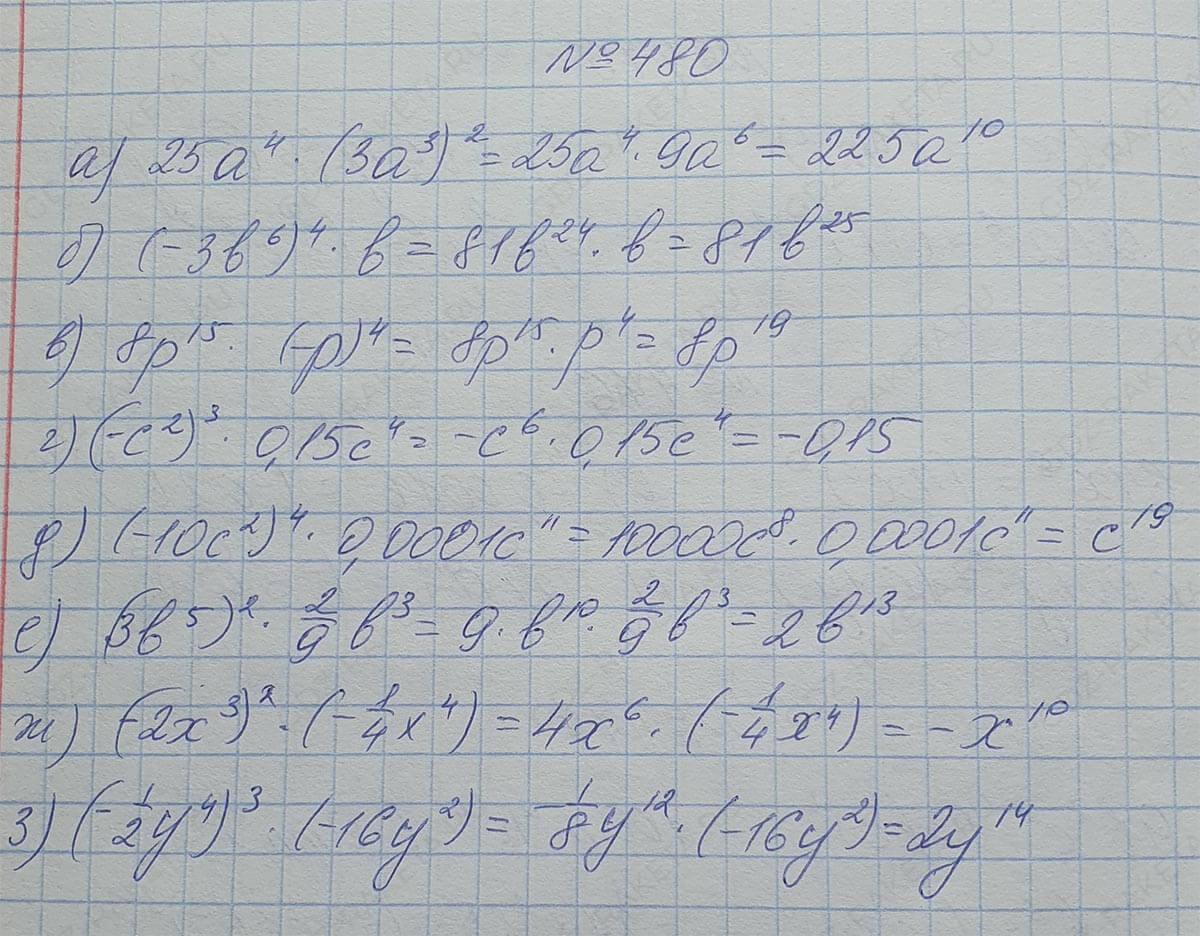 № 480
а) 25a⁴ · (3a³)² = 25a⁴ · 9a⁶ = 225a¹⁰
б) (-3b⁶)⁴ · b = 81b²⁴ · b = 81b²⁵
в) 8p¹⁵ · (-p)⁴ = 8p¹⁵ · p⁴ = 8p¹⁹
г) (-c²)³ · 0,15c⁴ = -c⁶ · 0,15c⁴ = -0,15
д) (-10c²)⁴ · 0,0001c¹¹ = 10000c⁸ · 0,0001c¹¹ = c¹⁹
е) (3b⁵)² · 2/9 b³ = 9 · b¹⁰ · 2/9 b³ = 2b¹³
ж) (-2x³)² · (-1/4 x⁴) = 4x⁶ · (-1/4 x⁴) = -x¹⁰
з) (-1/2 y⁴)³ · (-16y²) = -1/8 y¹² · (-16y²) = 2y¹⁴